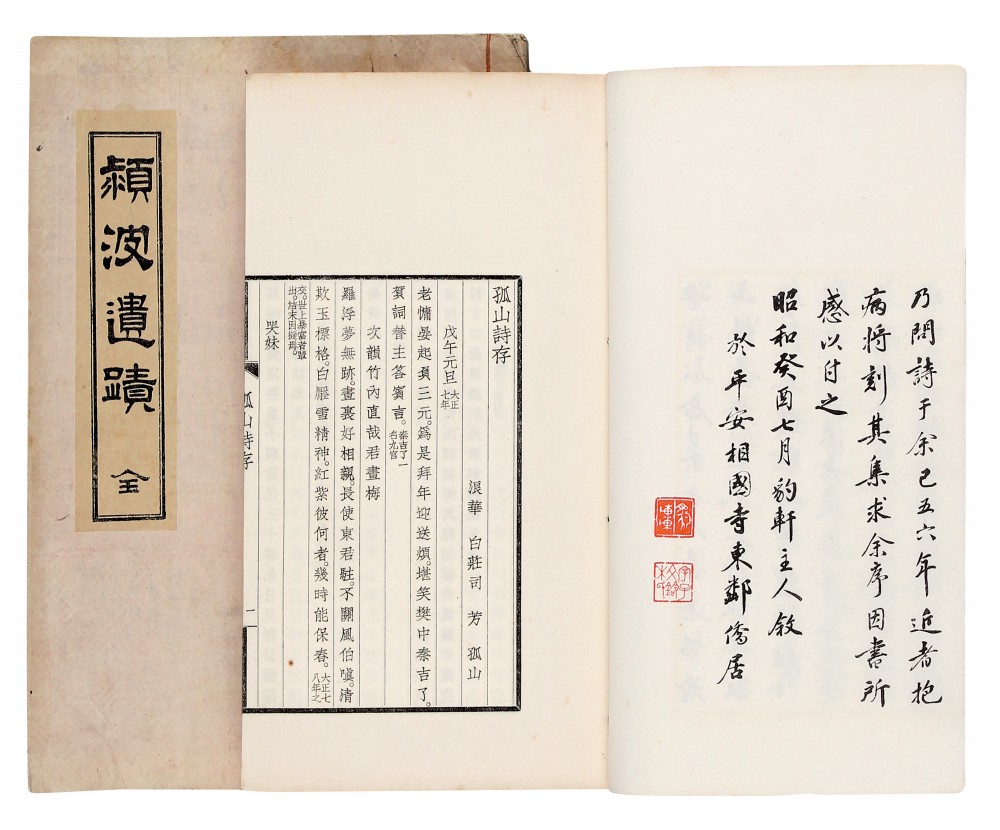 潁波遺蹟 全
乃問詩于余已五六年近者抱
病将刻其集求余序因書所
感以付之
昭和癸酉七月豹軒主人敘
於平安相國寺東鄰僑居
孤山詩存
浪華 白莊司 芳 孤山
戊午元旦 大正七年
老慵晏起負三元。爲是拜年迎送煩。堪笑樊中秦吉了。
賀詞替主答賓言。秦吉了一名九官
次韻竹內直哉君畫梅
羅浮夢無跡。畫裏好相親。長使東君駐。不關風伯嗔。清
欺玉標格。白壓雪精神。紅紫彼何者。幾時能保春。大正七八年之
交。世上暴富者輩出。結末因擬焉。
哭妹
孤山詩存
一